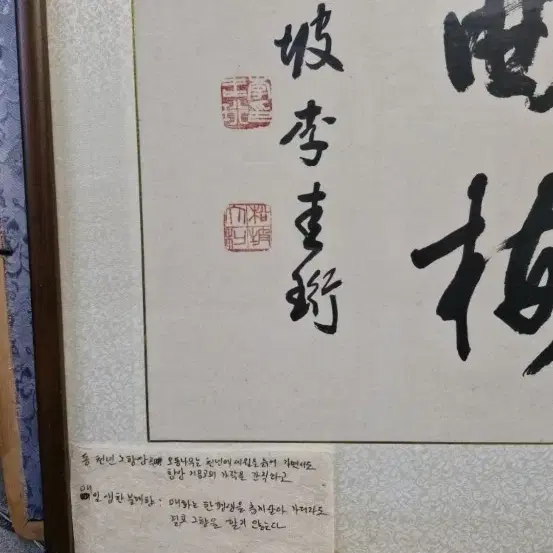 梅
坡李圭珩
동 천년 오동나무는 천년에 세월을 늙어 가면서도
항상 거문고의 가락을 간직하고
매 일생한불매향 : 매화는 한평생을 춥게살아 가더라도
결코 그향을 팔지 않는다